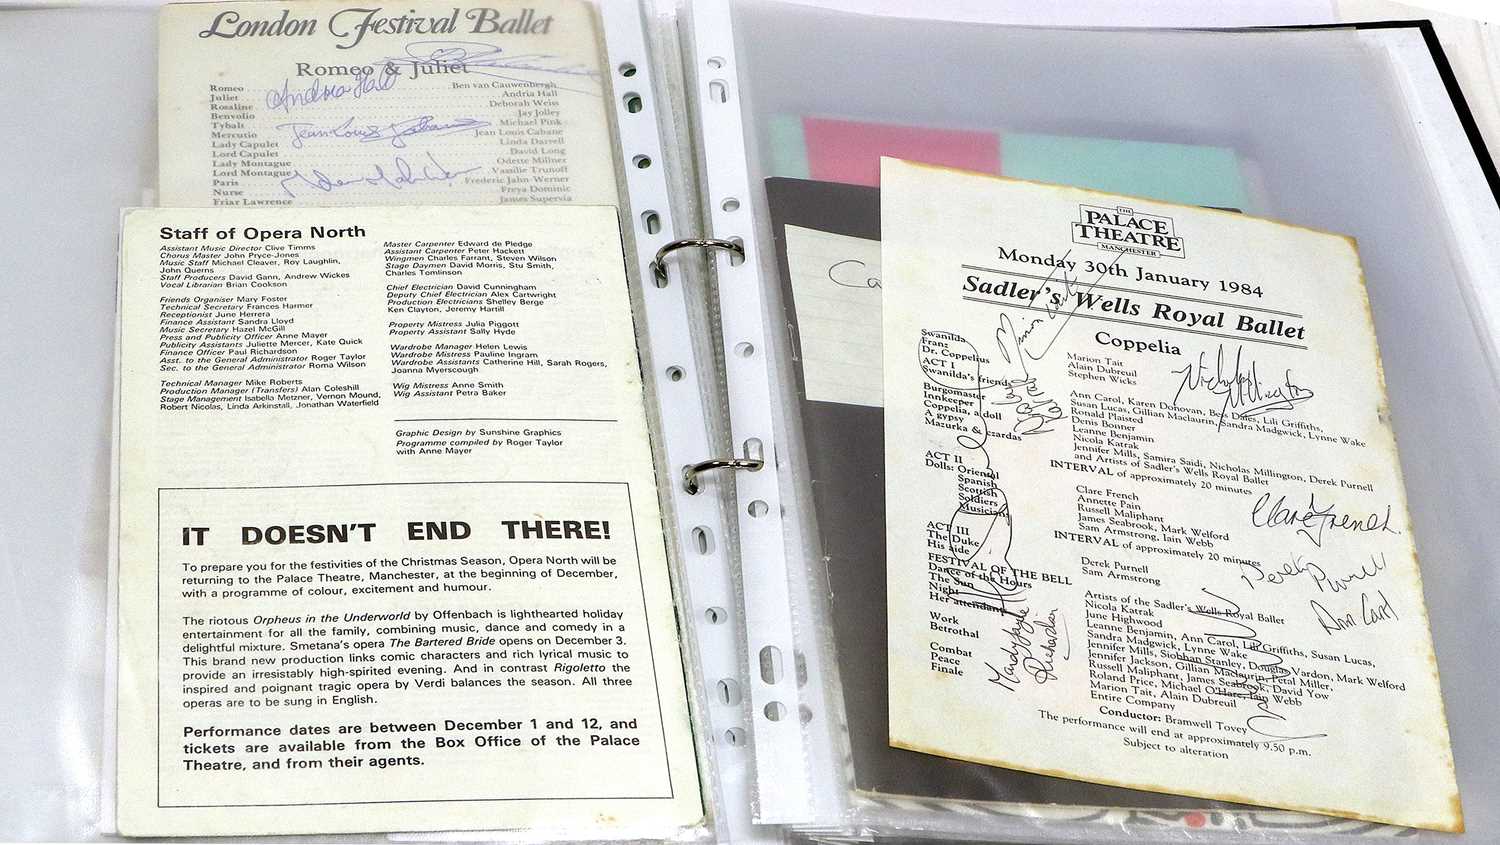 London Festival Ballet
Romeo & Juliet
Romeo Ben van Cauwenbergh
Juliet Andria Hall
Rosaline Deborah Weiss
Benvolio Jay Jolley
Tybalt Michael Pink
Mercutio Jean Louis Cabane
Lady Capulet Linda Darrell
Lord Capulet David Long
Lady Montague Odette Millner
Lord Montague Vassilie Trunoff
Paris Frederic Jahn-Werner
Nurse Freya Dominic
Friar Lawrence James Supervia
Andria Hall
Staff of Opera North
Assistant Music Director Clive Timms
Chorus Master John Pryce-Jones
Music Staff Michael Cleaver, Roy Laughlin,
John Querns
Staff Producers David Gann, Andrew Wickes
Vocal Librarian Brian Cookson
Friends Organiser Mary Foster
Technical Secretary Frances Harmer
Receptionist June Herrera
Finance Assistant Sandra Lloyd
Music Secretary Hazel McGill
Press and Publicity Officer Anne Mayer
Publicity Assistants Juliette Mercer, Kate Quick
Finance Officer Paul Richardson
Asst. to the General Administrator Roger Taylor
Sec. to the General Administrator Roma Wilson
Technical Manager Mike Roberts
Production Manager (Transfers) Alan Coleshill
Stage Management Isabella Metzner, Vernon Mound,
Robert Nicolas, Linda Arkinstall, Jonathan Waterfield
Master Carpenter Edward de Pledge
Assistant Carpenter Peter Hackett
Wingmen Charles Farrant, Steven Wilson
Stage Daymen David Morris, Stu Smith,
Charles Tomlinson
Chief Electrician David Cunningham
Deputy Chief Electrician Alex Cartwright
Production Electricians Shelley Berge
Ken Clayton, Jeremy Hartill
Property Mistress Julia Piggott
Property Assistant Sally Hyde
Wardrobe Manager Helen Lewis
Wardrobe Mistress Pauline Ingram
Wardrobe Assistants Catherine Hill, Sarah Rogers,
Joanna Myerscough
Wig Mistress Anne Smith
Wig Assistant Petra Baker
Graphic Design by Sunshine Graphics
Programme compiled by Roger Taylor
with Anne Mayer
IT DOESN'T END THERE!
To prepare you for the festivities of the Christmas Season, Opera North will be
returning to the Palace Theatre, Manchester, at the beginning of December,
with a programme of colour, excitement and humour.
The riotous Orpheus in the Underworld by Offenbach is lighthearted holiday
entertainment for all the family, combining music, dance and comedy in a
delightful mixture. Smetana's opera The Bartered Bride opens on December 3.
This brand new production links comic characters and rich lyrical music to
provide an irresistably high-spirited evening. And in contrast Rigoletto the
inspired and poignant tragic opera by Verdi balances the season. All three
operas are to be sung in English.
Performance dates are between December 1 and 12, and
tickets are available from the Box Office of the Palace
Theatre, and from their agents.
Ca
THE
PALACE
THEATRE
MANCHESTER
Monday 30th January 1984
Sadler's Wells Royal Ballet
Coppelia
Swanilda Marion Tait
Franz Alain Dubreuil
Dr. Coppelius Stephen Wicks
ACT I
Swanilda's friends Ann Carol, Karen Donovan, Bess Dales, Lili Griffiths,
Susan Lucas, Gillian Maclaurin, Sandra Madgwick, Lynne Wake
Burgomaster Ronald Plaisted
Innkeeper Denis Bonner
Coppelia, a doll Leanne Benjamin
A gypsy Nicola Katrak
Mazurka & czardas Jennifer Mills, Samira Saidi, Nicholas Millington, Derek Purnell
and Artists of Sadler's Wells Royal Ballet
INTERVAL of approximately 20 minutes
ACT II
Dolls: Oriental Clare French
Spanish Annette Pain
Scottish Russell Maliphant
Soldiers James Seabrook, Mark Welford
Musician Sam Armstrong, Iain Webb
INTERVAL of approximately 20 minutes
ACT III
The Duke Derek Purnell
His aide Sam Armstrong
FESTIVAL OF THE BELL
Dance of the Hours Artists of the Sadler's Wells Royal Ballet
The Sun Nicola Katrak
Night June Highwood
Her attendants Leanne Benjamin, Ann Carol, Lili Griffiths, Susan Lucas,
Sandra Madgwick, Lynne Wake
Work Jennifer Mills, Siobhan Stanley, Douglas Vardon, Mark Welford
Betrothal Jennifer Jackson, Gillian Maclaurin, Petal Miller,
Russell Maliphant, James Seabrook, David Yow
Combat Roland Price, Michael O'Hare, Iain Webb
Peace Marion Tait, Alain Dubreuil
Finale Entire Company
Conductor: Bramwell Tovey
The performance will end at approximately 9.50 p.m.
Subject to alteration
Clare French
Derek Purnell
Ann Carol